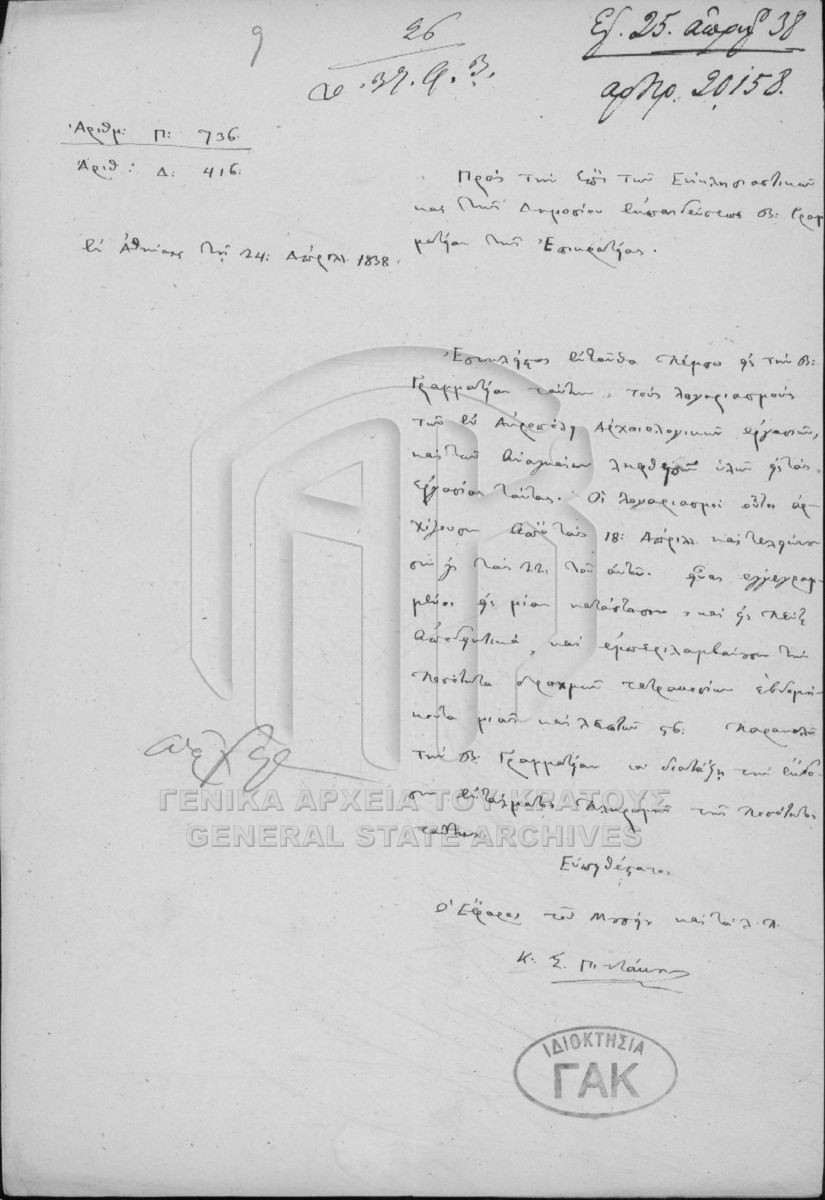 9
26
Εγ. 25. ἀπριλ 38
αρθρ. 20158.
Ἀριθμ: Π: 736.
Ἀριθ: Δ: 416.
Πρὸς τὴν ἐπὶ τῶν Ἐκκλησιαστικῶν
καὶ τῆς Δημοσίου ἐκπαιδεύσεως Β: Γραμ
ματείαν τῆς Ἐπικρατείας.
Ἐν Ἀθήναις τῇ 24: Ἀπριλ. 1838.
Ἐπικλείστως ἐνταῦθα πέμπω εἰς τὴν Β:
Γραμματείαν ταύτην, τοὺς λογαριασμοὺς
τῶν ἐν Ἀκροπόλει Ἀρχαιολογικῶν ἐργασιῶν,
καὶ τῶν ἀναγκαίων ληφθεισῶν ὑλῶν εἰς τὰς
ἐργασίας ταύτας. Οἱ λογαριασμοὶ οὗτοι ἀρ-
χίζουσιν ἀπὸ τὰς 18: Ἀπριλ. καὶ τελειώνου
σιν εἰς τὰς 22. τοῦ αὐτοῦ. εἶναι ἐγγεγραμ-
μένοι εἰς μίαν κατάστασιν, καὶ εἰς πέντε
ἀποδεικτικά, καὶ ἐμπεριλαμβάνουσι τὴν
ποσότητα δραχμῶν τετρακοσίων ἑβδομή-
κοντα μιᾶς καὶ λεπτῶν 56: παρακαλῶ
τὴν Β: Γραμματείαν νὰ διατάξῃ τὴν ἔκδο-
σιν ἐντάλματος πληρωμῆς τῆς ποσότητος
ταύτης.
Εὐπειθέστατος
Ὁ Ἔφορος τοῦ Μουσείου καὶ τὰ λ. π.
Κ. Σ. Πιττάκης
ΓΕΝΙΚΑ ΑΡΧΕΙΑ ΤΟΥ ΚΡΑΤΟΥΣ
GENERAL STATE ARCHIVES
ΙΔΙΟΚΤΗΣΙΑ
ΓΑΚ